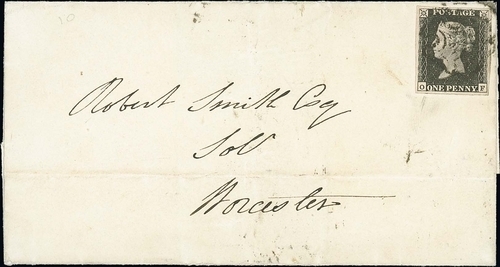 10
POSTAGE
O ONE PENNY F
Robert Smith Esq
Solr
Worcester